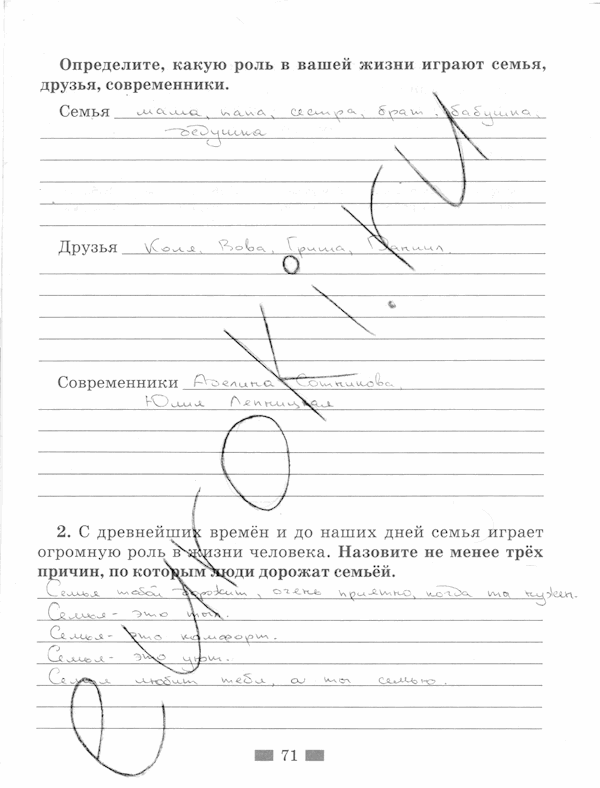 Определите, какую роль в вашей жизни играют семья,
друзья, современники.
Семья мама, папа, сестра, брат, бабушка,
дедушка
Друзья Коля, Вова, Гриша, Даниил.
Современники Аделина Сотникова,
Юлия Липницкая
2. С древнейших времён и до наших дней семья играет
огромную роль в жизни человека. Назовите не менее трёх
причин, по которым люди дорожат семьёй.
Семья тобой дорожит, очень приятно, когда ты нужен.
Семья - это тыл.
Семья - это комфорт.
Семья - это уют.
Семья любит тебя, а ты семью.
71
eurokI.ru